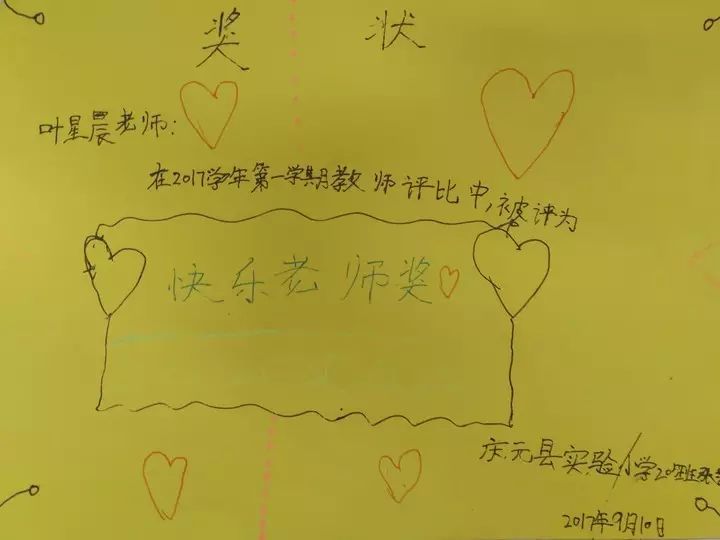 奖 状
叶星晨老师:
在2017学年第一学期教师评比中,被评为
快乐老师奖
庆元县实验小学20班
2017年9月10日